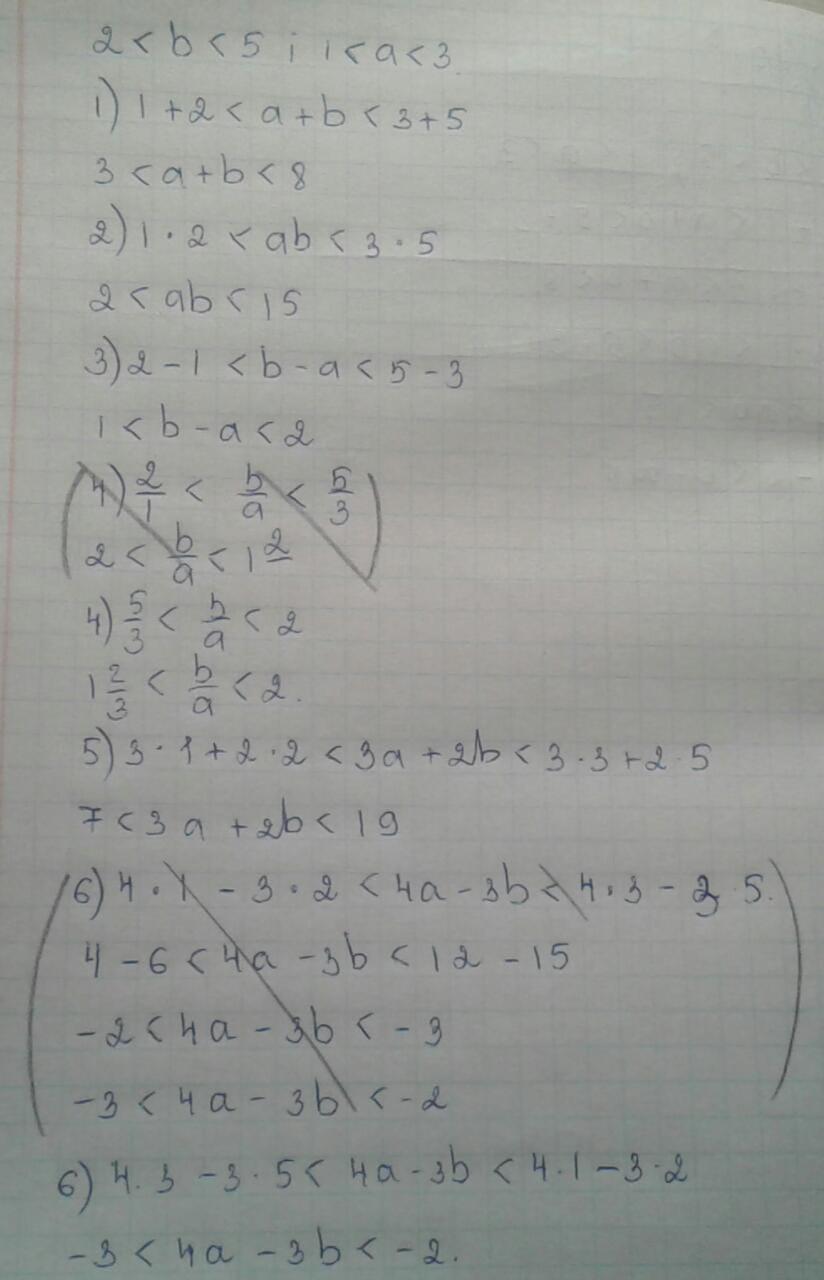 2 < b < 5 ; 1 < a < 3
1) 1 + 2 < a + b < 3 + 5
3 < a + b < 8
2) 1 · 2 < ab < 3 · 5
2 < ab < 15
3) 2 - 1 < b - a < 5 - 3
1 < b - a < 2
(4) 2/1 < b/a < 5/3
2 < b/a < 1 2)
4) 5/3 < b/a < 2
1 2/3 < b/a < 2.
5) 3 · 1 + 2 · 2 < 3a + 2b < 3 · 3 + 2 · 5
7 < 3a + 2b < 19
(6) 4 · 1 - 3 · 2 < 4a - 3b < 4 · 3 - 3 · 5.
4 - 6 < 4a - 3b < 12 - 15
-2 < 4a - 3b < -3
-3 < 4a - 3b < -2)
6) 4 · 3 - 3 · 5 < 4a - 3b < 4 · 1 - 3 · 2
-3 < 4a - 3b < -2.